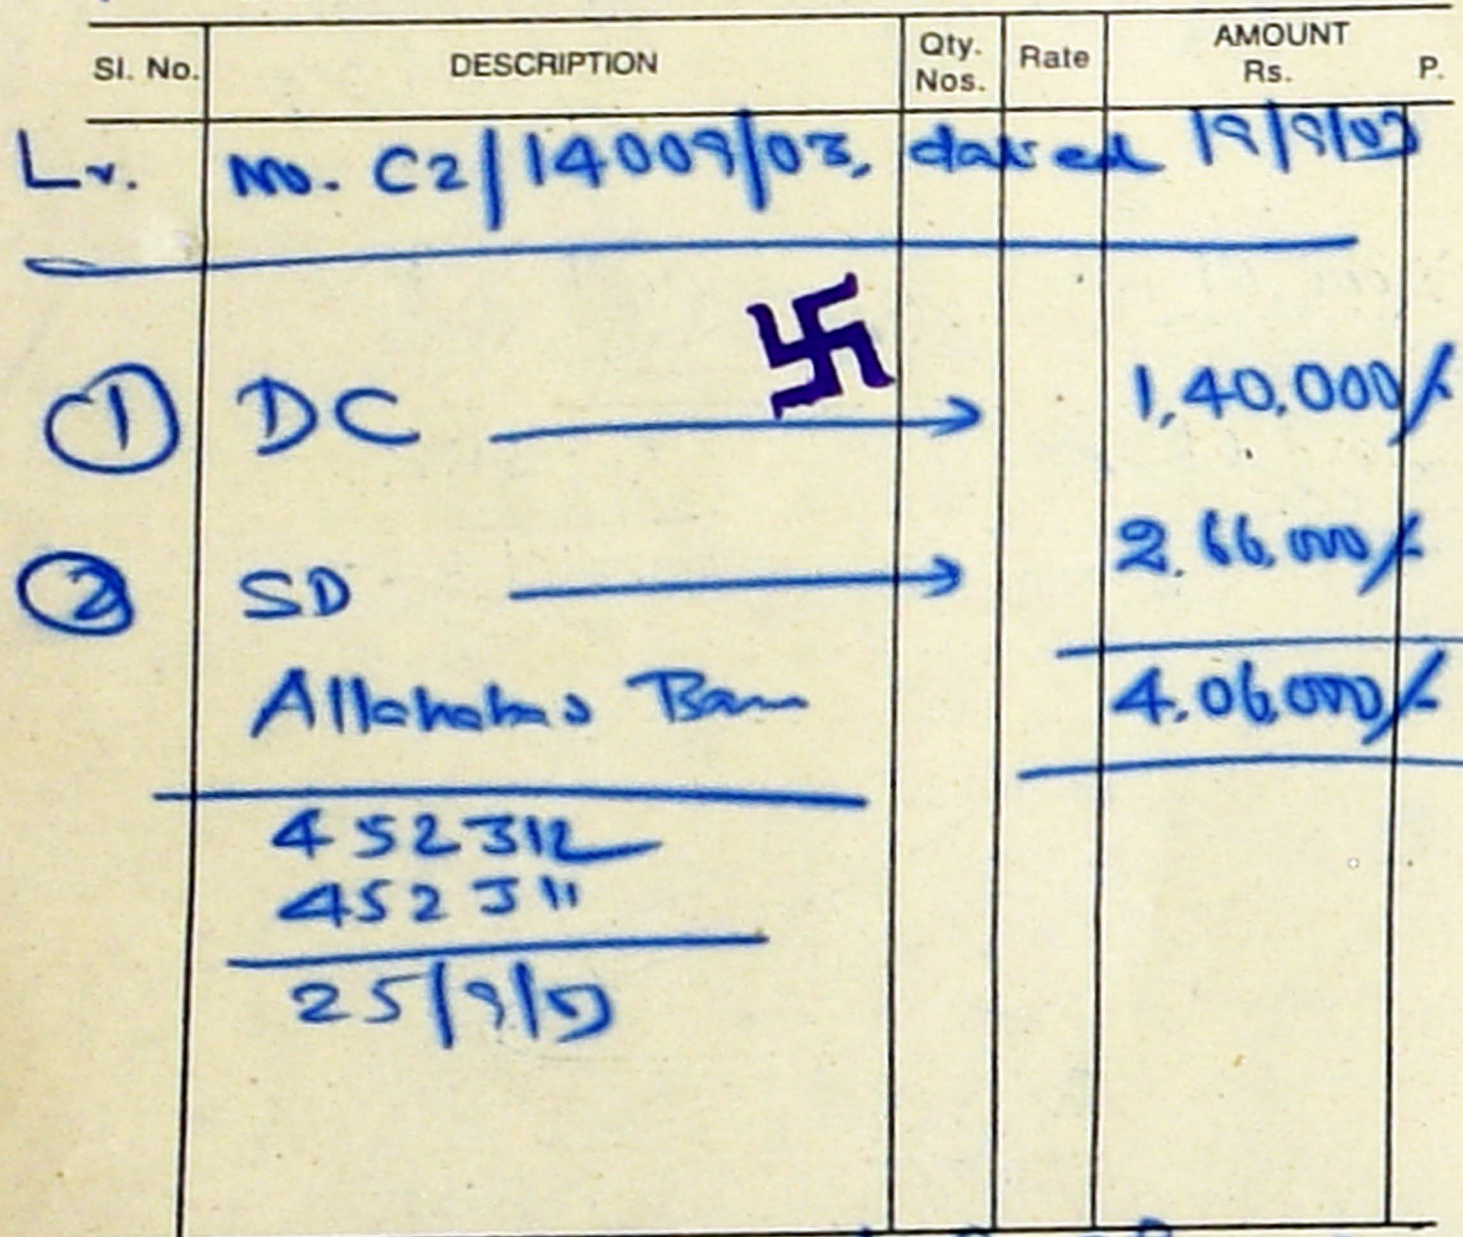 Sl. No. DESCRIPTION Qty. Nos. Rate AMOUNT Rs. P.
Lr. No. C2/14009/03, dated 19/9/03
1 DC → 1,40,000/-
2 SD → 2,66,000/-
4,06,000/-
452312
452311
25/9/03